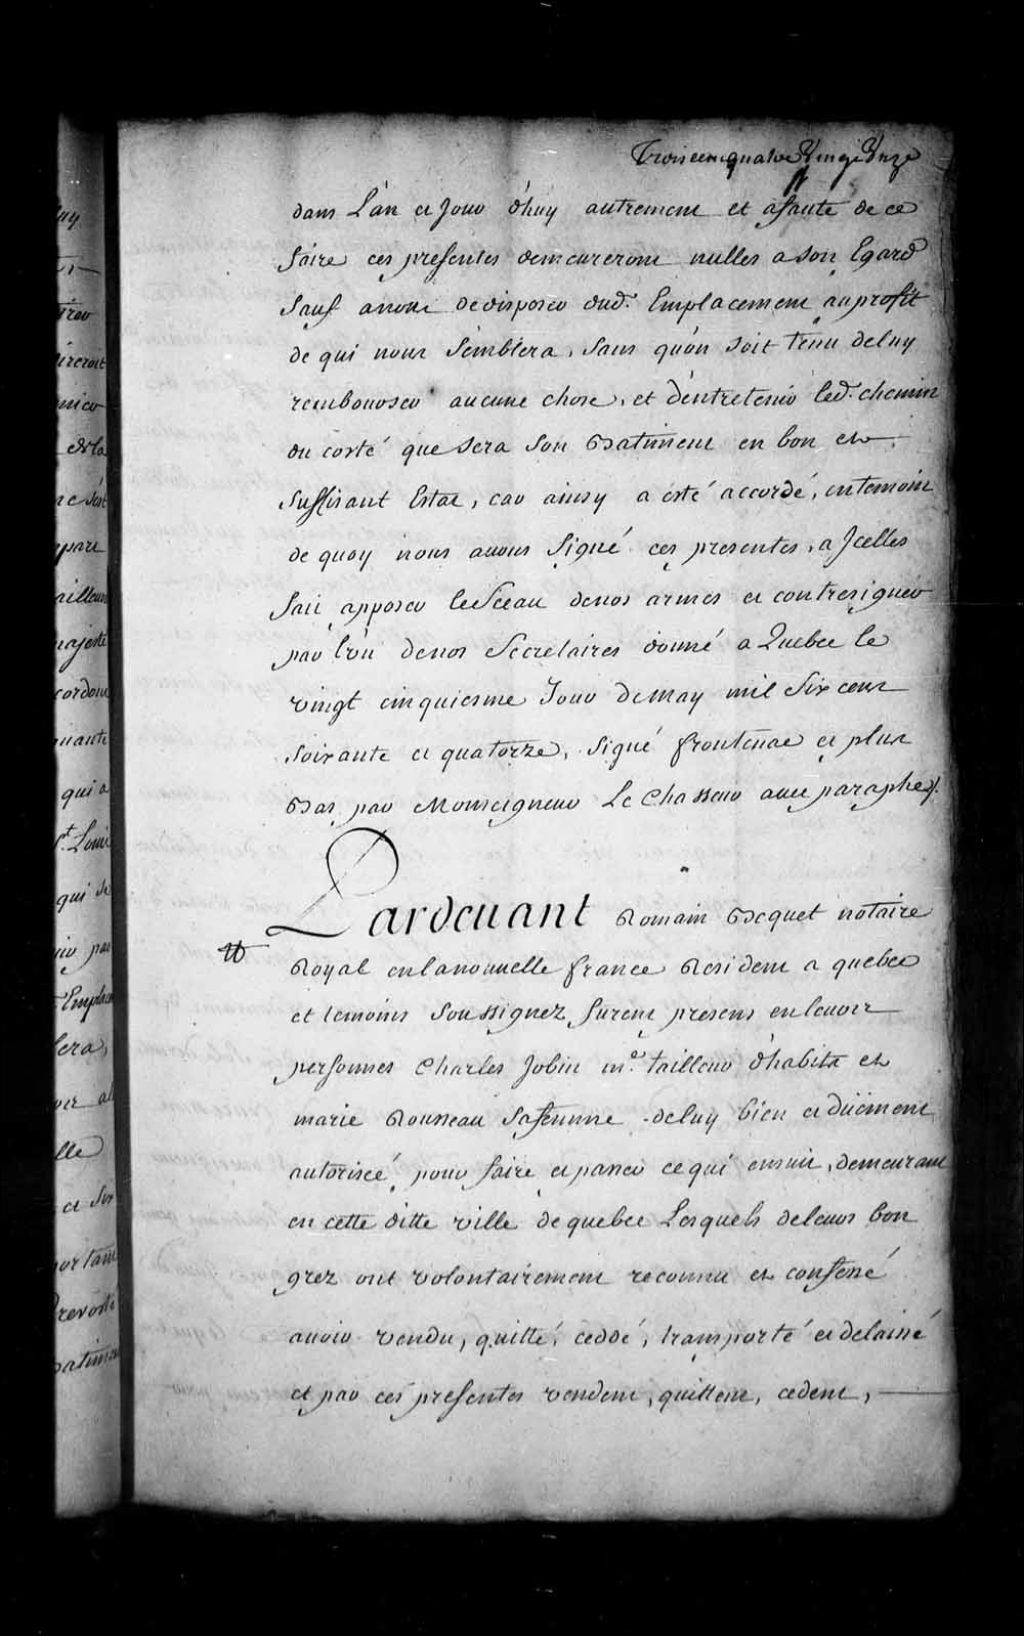 Troiscens quatre Vingt Unze
uy
dans L'an et Jour d'huy autrement et afaute de ce
faire ces presentes demeureront nulles a son Egard
Sauf anous de disposer dud. Emplacement au profit
de qui nous Semblera, Sans quon soit tenu deluy
rembourser aucune chose, et d'entretenir led. chemin
du costé que sera son Batiment en bon et
suffisant Estat, car ainsy a esté accordé, entemoin
de quoy nous auons Signé ces presentes, a Jcelles
fait apposer le Sceau denos armes et contresigner
par l'un denos Secretaires donné a Quebec le
vingt cinquiesme Jour de May mil Six cent
soixante et quatorze, Signé frontenac et plus
Bas par Monseigneur Le Chasseur auec paraphe ./.
Pardeuant Romain Becquet notaire
Royal enlanouuelle france Resident a quebec
et temoins Soussignez furent presens enleurs
personnes Charles Jobin me. tailleur d'habits et
marie Rousseau Safemme deluy bien et düement
autorisée pour faire et passer cequi ensuit, demeurant
en cette ditte ville de quebec Lesquels deleurs bon
grez ont volontairement reconnu et confessé
auoir vendu, quitté, ceddé, transporté et delaissé
et par ces presentes vendent, quittent, cedent,
ailleurs
majesté
qui a
St. Louis
qui se
Emplace